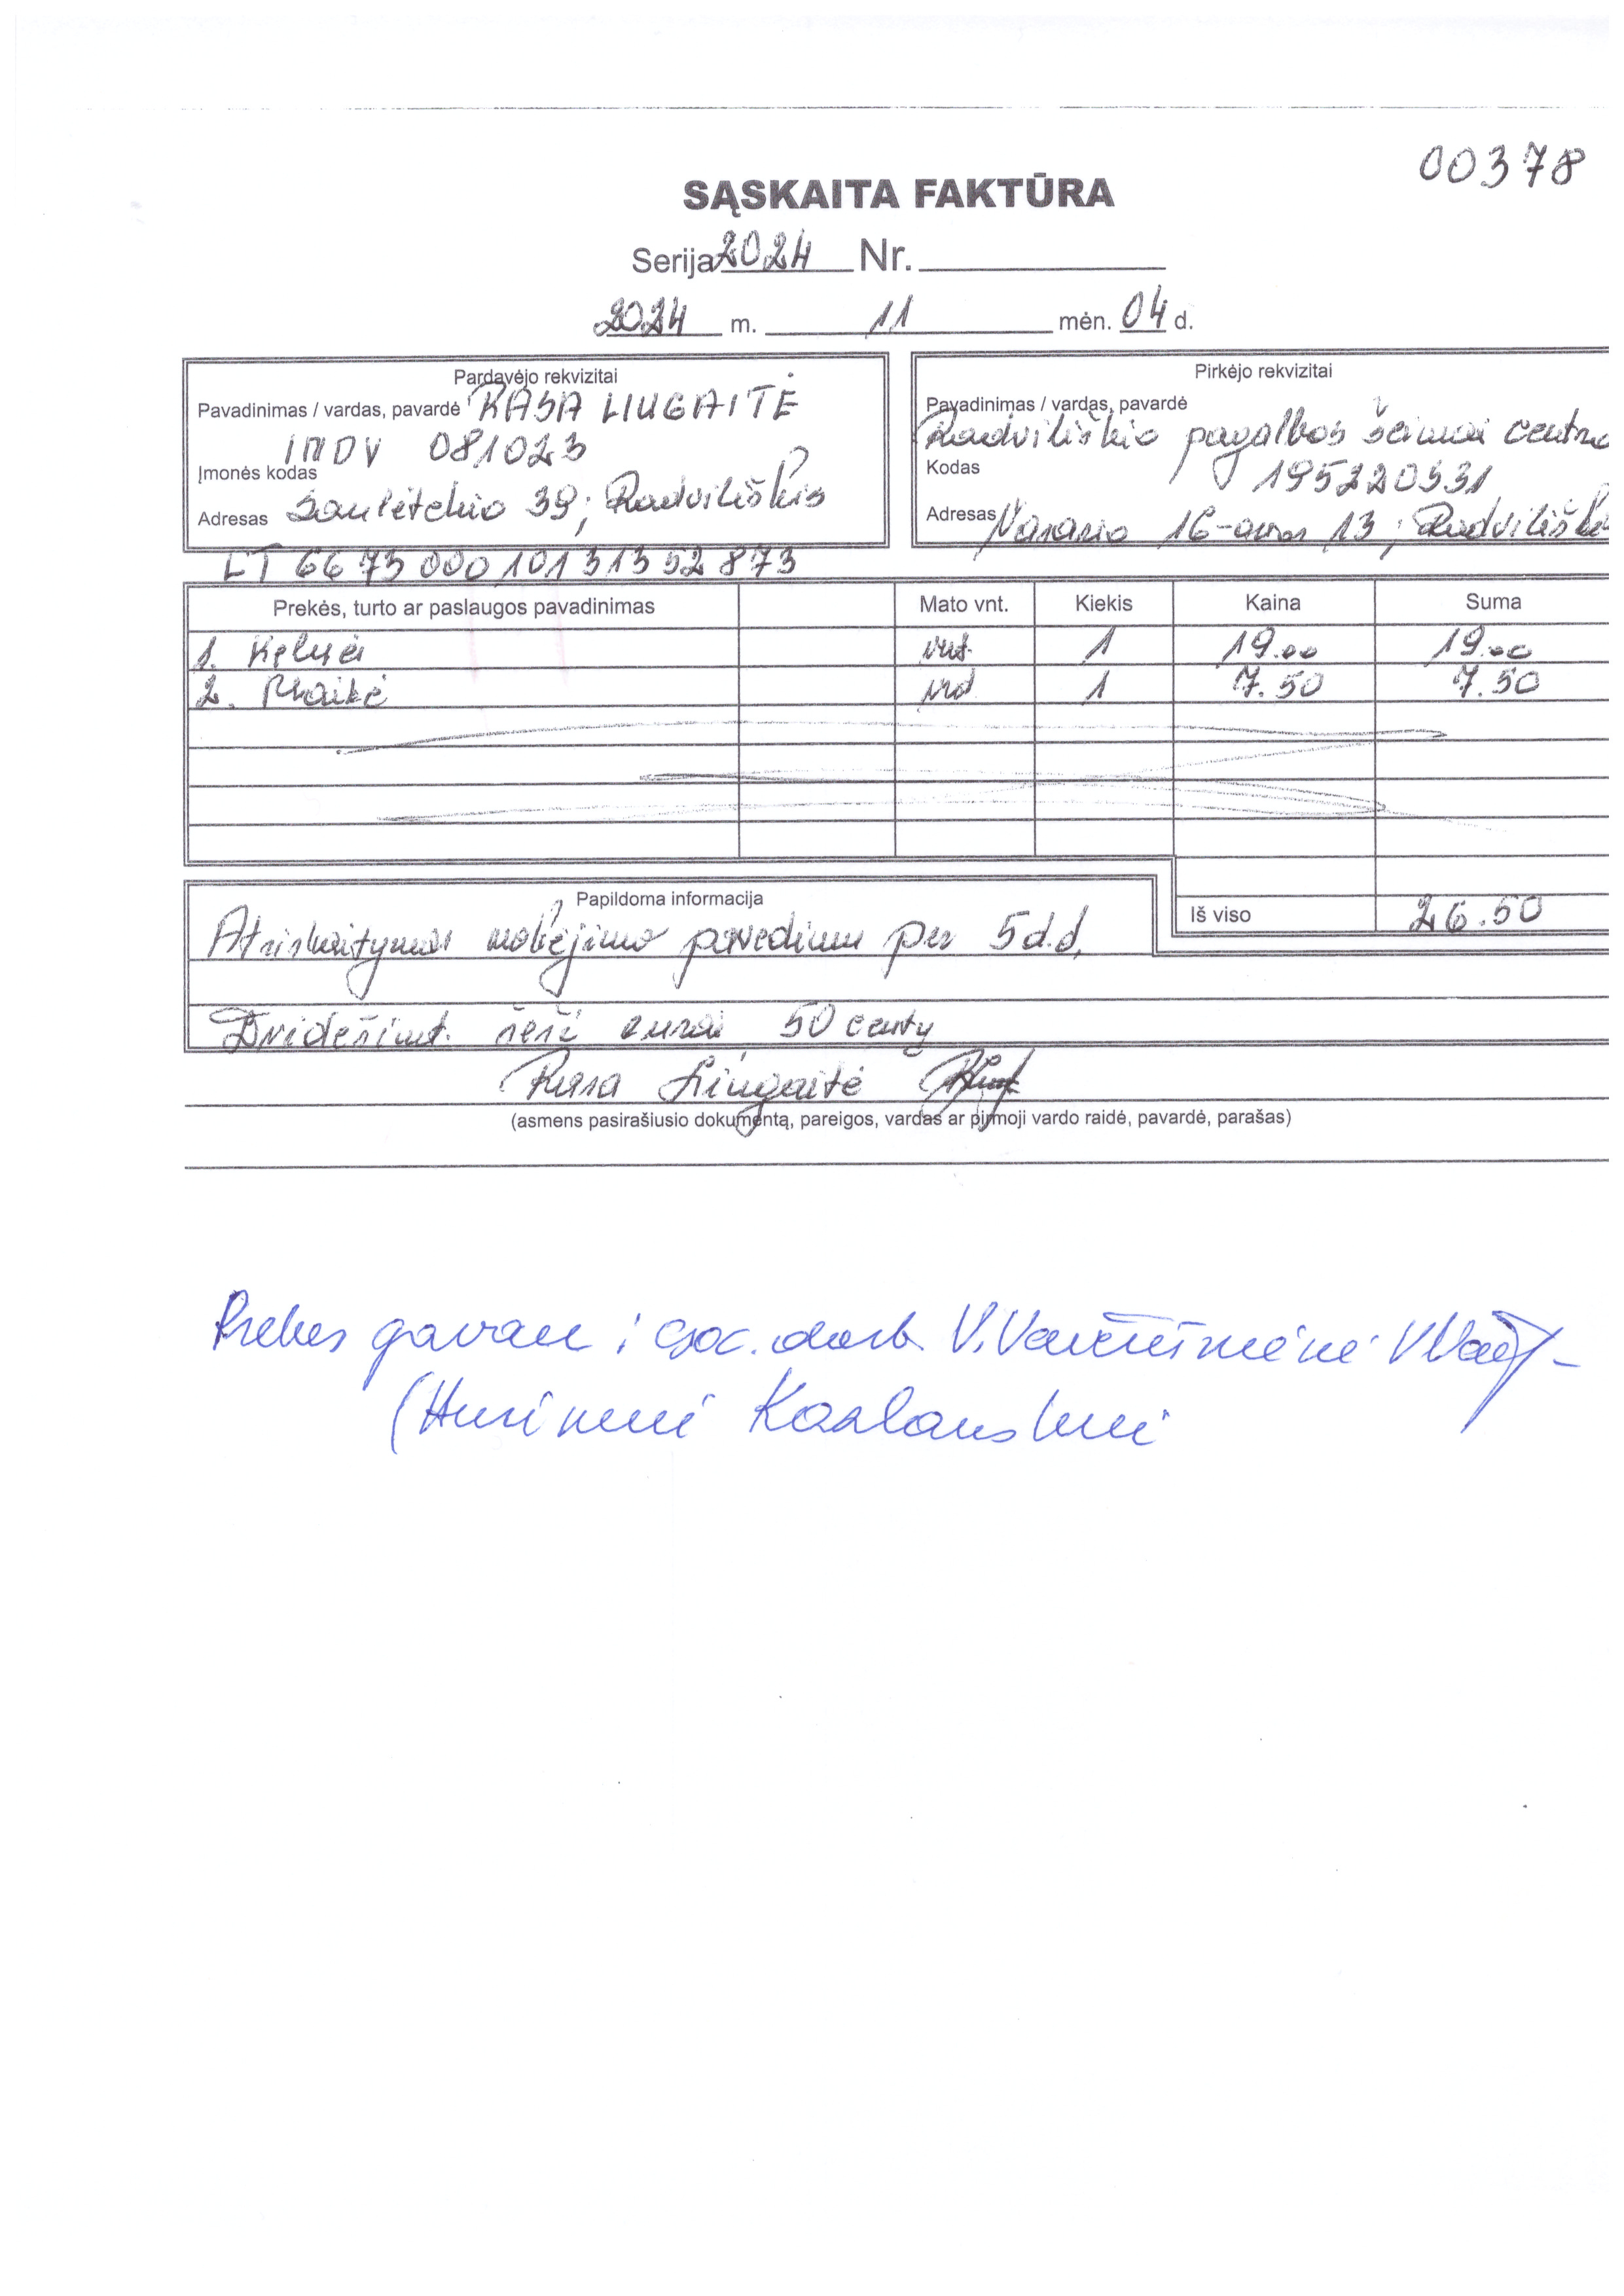 00378
SĄSKAITA FAKTŪRA
Serija 2024 Nr.
2024 m. 11 mėn. 04 d.
Pardavėjo rekvizitai
Pavadinimas / vardas, pavardė RASA LIUGAITĖ
INDV 081023
Įmonės kodas
Adresas Saulėtekio 39; Radviliškis
LT 66 73 000 101 31352 873
Pirkėjo rekvizitai
Pavadinimas / vardas, pavardė
Radviliškio pagalbos šeimai centra
Kodas 195220531
Adresas Vasario 16-osios 13; Radvilišk
Prekės, turto ar paslaugos pavadinimas Mato vnt. Kiekis Kaina Suma
1. Kelnės vnt. 1 19.00 19.00
2. vnt 1 7.50 7.50
Iš viso 26.50
Papildoma informacija
Atsiskaitymas mokėjimo pavedimu per 5 d.d.
Dvidešimt šeši eurai 50 centų
Rasa Liugaitė
(asmens pasirašiusio dokumentą, pareigos, vardas ar pirmoji vardo raidė, pavardė, parašas)
Prekes gavau: soc. darb. V.
Kazlauskui